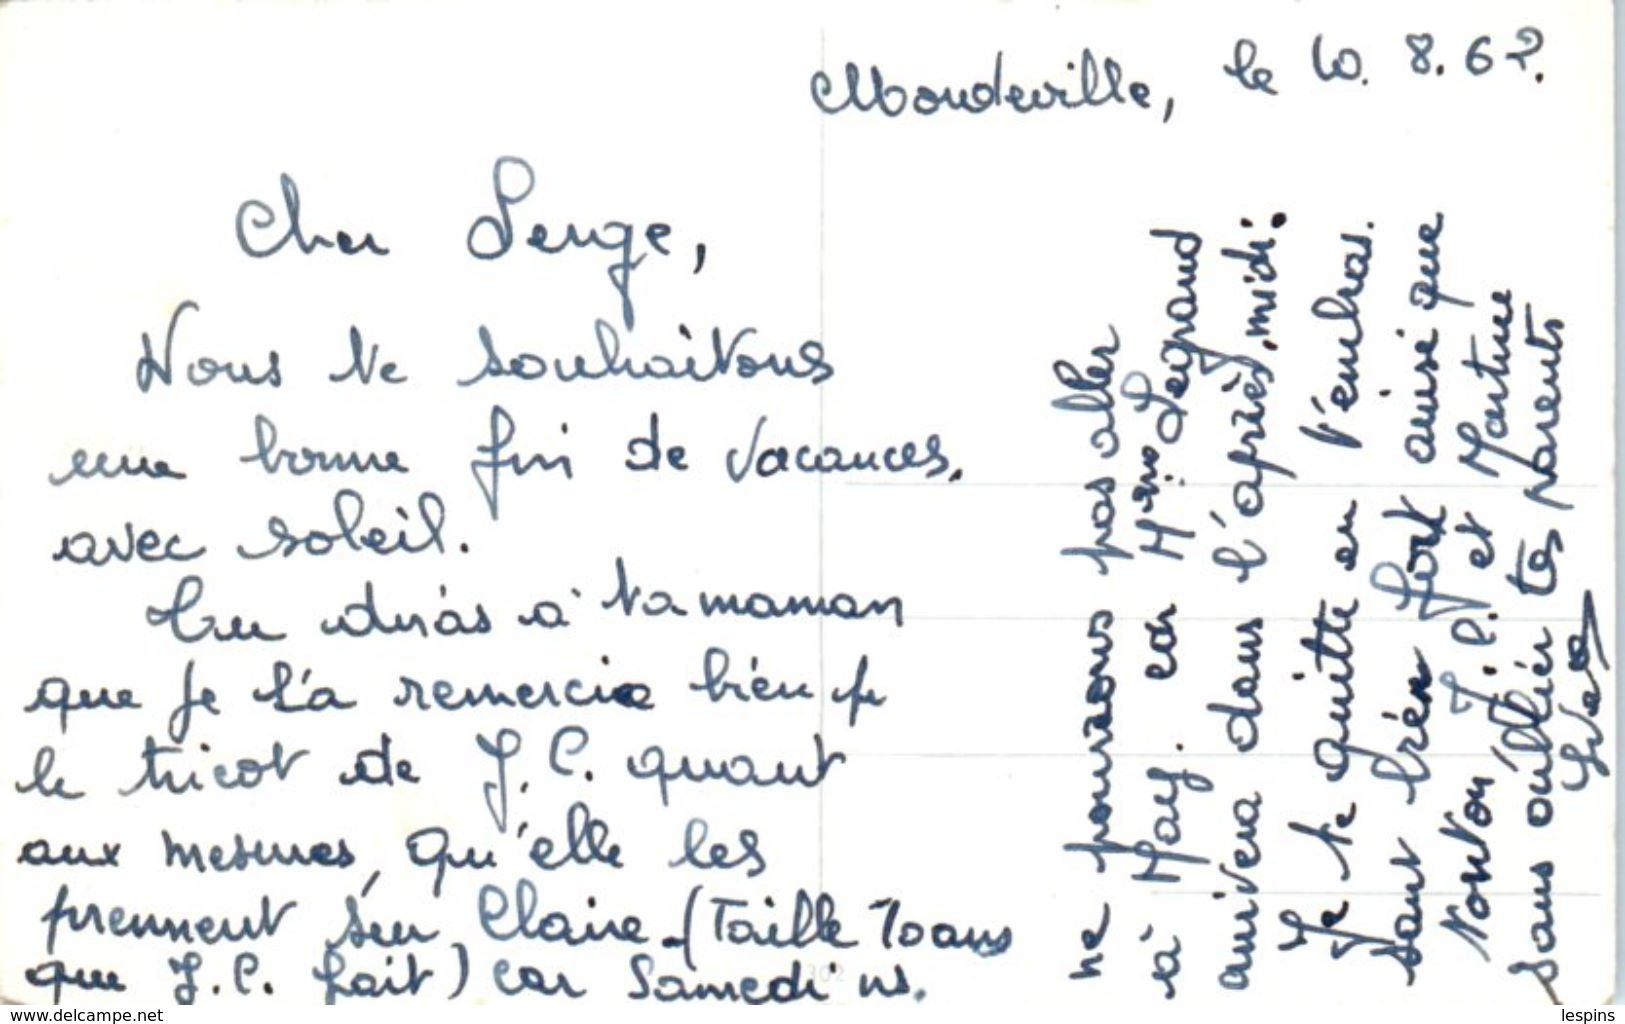 Mondeville, le 10.8.62.
Cher Serge,
Nous te souhaitons
une bonne fin de vacances,
avec soleil.
Tu diras à ta maman
que je la remercie bien pr
le tricot de J.C. quant
aux mesures, qu'elle les
prennent sur Claire (Taille 10 ans
que J.C. fait) car Samedi ns.
ne pourrons pas aller
à May. car Legrand
arrivera dans l'après, midi.
Je te quitte en t'embras.
sant bien fort ainsi que
tonton J.C. et Martine
sans oublier tes parents
delcampe.net
lespins